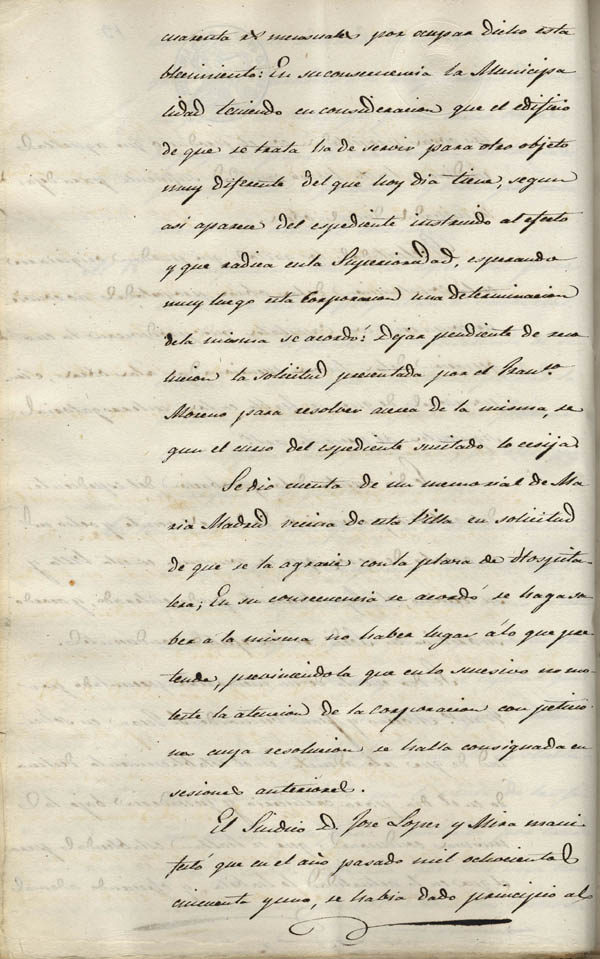 cuarenta rs mensuales por ocupar dicho esta
blecimiento: En su consecuencia la Municipa
lidad teniendo en consideracion que el edificio
de que se trata ha de servir para otro objeto
muy diferente del que hoy dia tiene, segun
asi aparece del espediente instruido al efecto
y que radica en la Superioridad, esperando
muy luego esta Corporacion una determinacion
de la misma se acordó: Dejar pendiente de reso
lucion la solicitud presentada por el Franco.
Moreno para resolver acerca de la misma, se
gun el curso del espediente suscitado lo ecsija
Se dio cuenta de un memorial de Ma
ria Madrid vecina de esta Villa en solicitud
de que se la agracie con la plaza de Hospita-
lera; En su consecuencia se acordó se haga sa
ber a la misma no haber lugar á lo que pre
tende, previniendola que en lo sucesivo no mo-
leste la atencion de la Corporacion con peticio-
nes cuya resolucion se halla consignada en
sesiones anteriores.
El Sindico D. Jose Lopez y Mira mani
festó que en el año pasado mil ochocientos
cincuenta y uno, se habia dado principio al